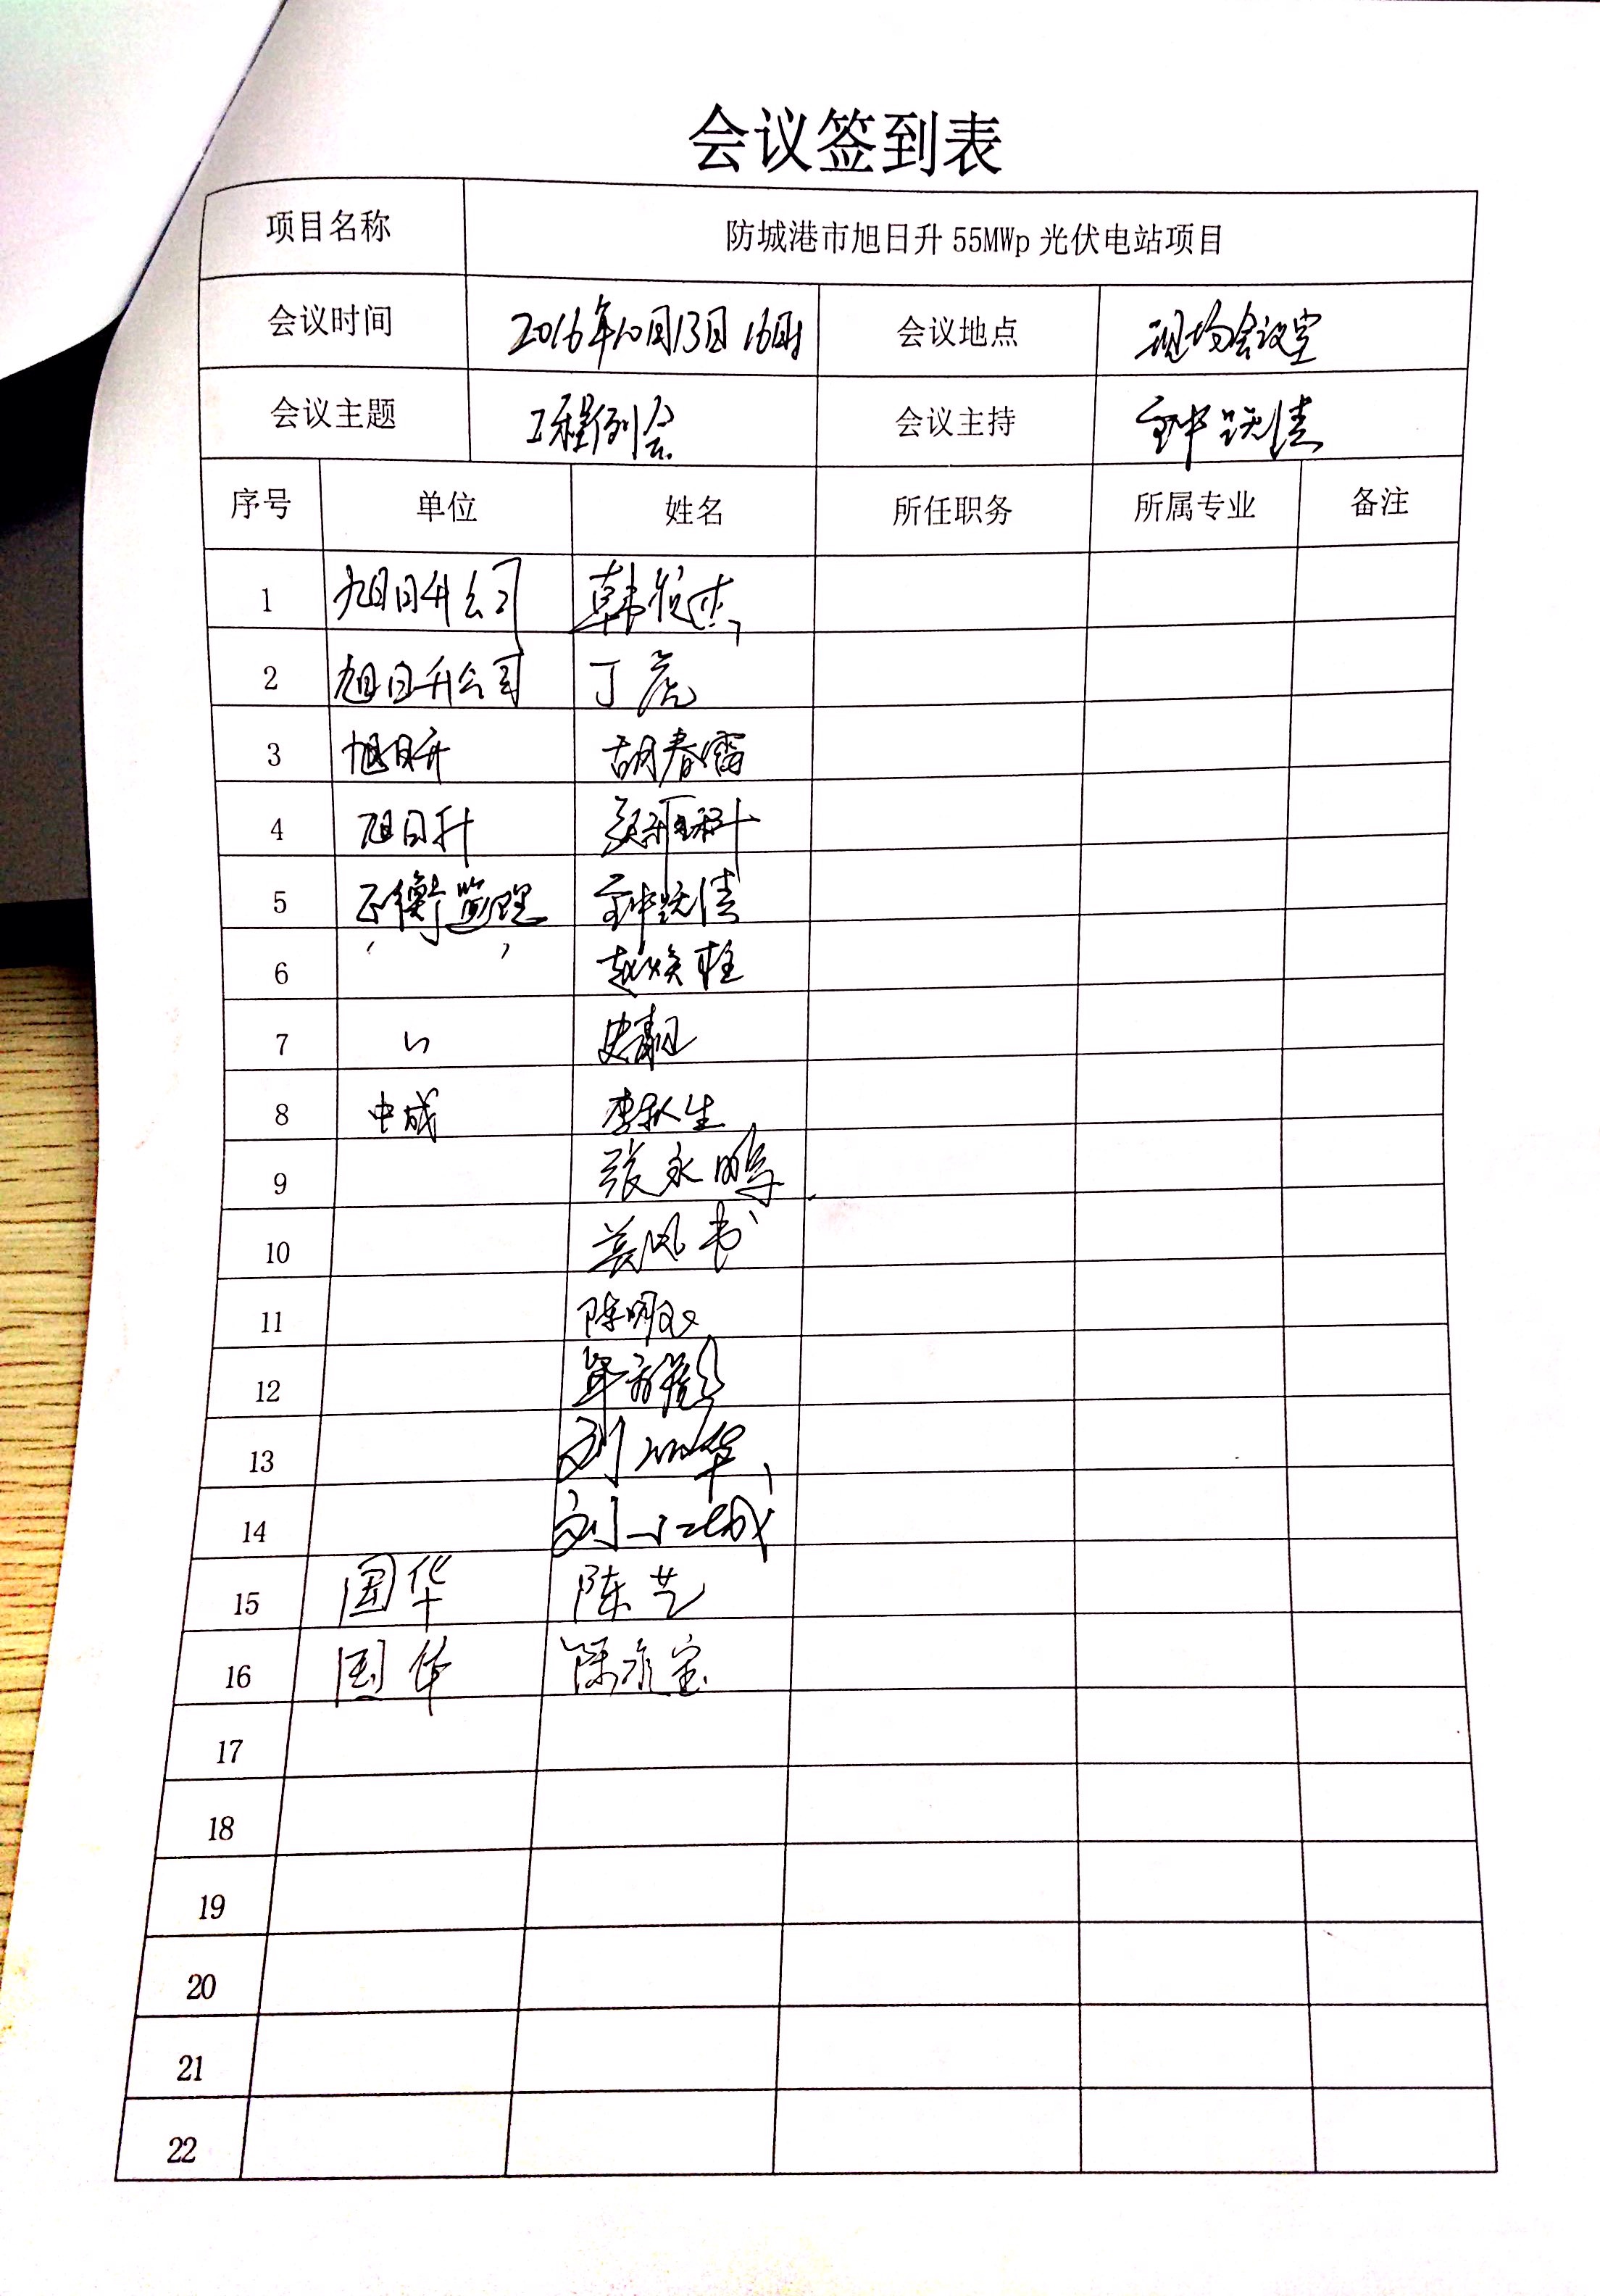 会议签到表
项目名称 防城港市旭日升 55MWp 光伏电站项目
会议时间 2016年10月13日 16时 会议地点 现场会议室
会议主题 工程例会 会议主持 钟跃清
序号 单位 姓名 所任职务 所属专业 备注
1 旭日升公司 韩发杰
2 旭日升公司 丁虎
3 旭日升 胡春雷
4 旭日升
5 正衡监理 钟跃清
6 赵焕柱
7 〃
8 中成 李秋生
9 张永鹏
10 风书
11 陈明
12
13 刘 华
14 刘 城
15 国华 陈艺
16 国华 陈彦宝
17
18
19
20
21
22